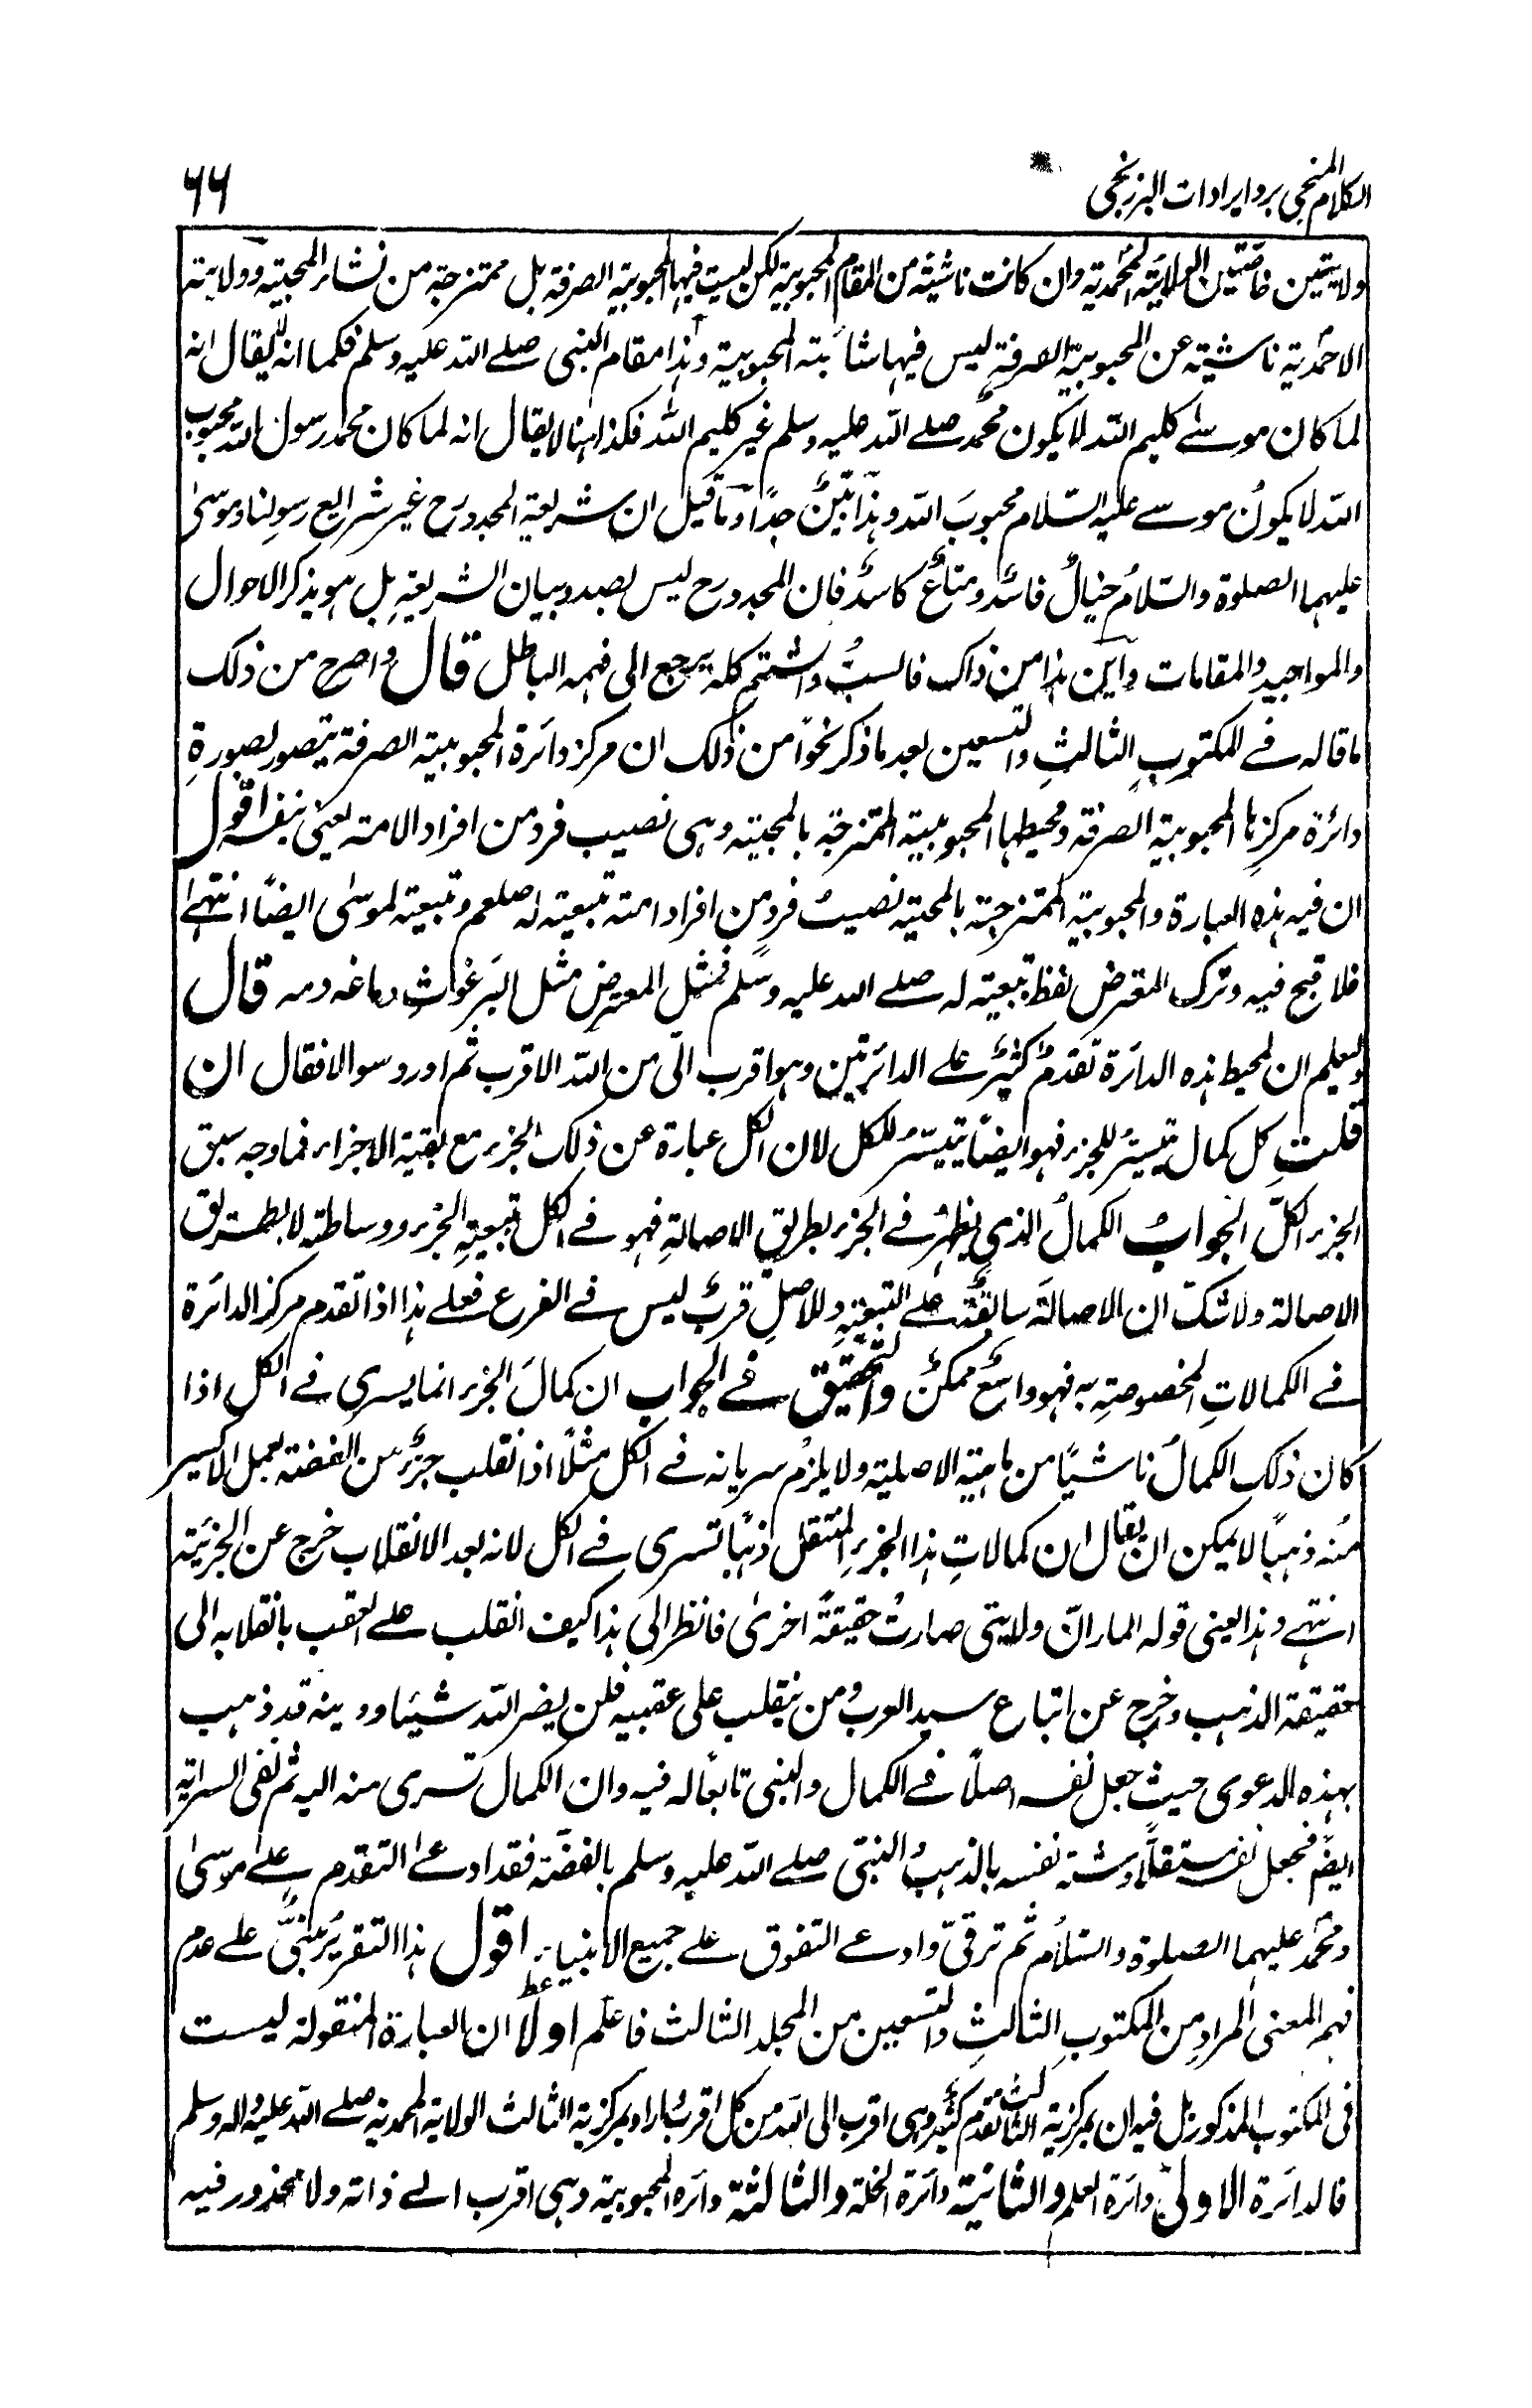 الكلام المنجى برد ايرادات البرزنجى
٦٦
ولايتين خاصتين الولاية المحمدية وان كانت ناشئة من المقام المحبوبية لكن ليست فيها المحبوبية الصرفة بل ممتزجة من نشاء المحبية وولاية
الاحمدية ناشية عن المحبوبية الصرفة ليس فيها شائبة المحبوبية وهذا مقام النبى صلے الله عليه وسلم فكما انه لا يقال انه
لما كان موسے كليم الله لا يكون محمد صلے الله عليه وسلم غير كليم الله فكذا هنا لا يقال انه لما كان محمد رسول الله محبوب
الله لا يكونُ موسے عليه السّلام محبوبَ الله وهذا بَيِّنٌ جدًّا وَمَا قيل ان شريعة المجدد رح غير شرايع رسولنا وموسىٰ
عليهما الصلوة والسّلامُ خيالٌ فاسدٌ ومتاعٌ كاسدٌ فان المجدد رح ليس بصدد بيان الشريعةِ بل هو يذكر الاحوال
والمواجيد والمقامات وَاَين هذا من ذاك فالسبُّ والشتم كله يرجع الى فهمه الباطل قال واصرح من ذلك
ما قاله فے المكتوبِ الثالثِ والتسعين بعد ما ذكر نحوًا من ذلك ان مركز دائرة المحبوبية الصرفة يتصور بصورةِ
دائرة مركزِها المحبوبية الصرفة ومحيطها المحبوبية الممتزجة بالمحبية وهى نصيب فرد من افراد الامة يعنى نفسه اقول
ان فيه هذه العبارة والمحبوبية الممتزجة بالمحبية نصيبُ فردٍ من افراد امته تبعيته له صلعم وتبعيته لموسٰى ايضًا انتهےٰ
فلا قبح فيه وترك المعترض لفظ تبعيته له صلے الله عليه وسلم فمثل المعترض مثل البَرغوث دماغه دمه قال
وليعلم ان لمحيط هذه الدائرة تقدمٌ كثيرٌ علے الدائرتين وهو اقرب الّى من الله الاقرب ثم اورد سوالا فقال ان
قلتِ كل كمال تيسيَرُ للجزء فهو ايضًا يتيسّرُ للكل لان الكل عبارة عن ذلك الجزء مع بقية الاجزاء فما وجه سبق
الجزء الكلّ الجوابُ الكمالُ الذي يظهرُ فے الجزء بطريق الاصالةِ فهو فے الكل تبعيةِ الجزء ووساطته لا بطريق
الاصالة ولا شكّ ان الاصالةَ سابقةٌ علے التبعيةِ وللاصلِ قربٌ ليس فے الفرع فعلے هذا اذا تقدم مركز الدائرة
فے الكمالاتِ المخصوصةِ به فهو واسعٌ ممكنٌ والتحقيق فے الجواب ان كمالَ الجزء انما يسرى فے الكل اذا
كان ذلك الكمالُ ناشيًا من ماهيته الاصلية ولا يلزمُ سريانه فے الكل مثلًا اذا انقلب جزءٌ من الفضة بعمل الاكسير
منه ذهبًا لا يمكن ان يقال ان كمالاتِ هذا الجزءِ المتنقل ذهبًا تسرى فے الكل لانه بعد الانقلاب خرج عن الجزئية
انتهے وهذا يعنى قوله المار انّ ولايتى صارتْ حقيقةً اخرىٰ فانظر الى هذا كيف انقلب علے العقب بانقلابه الى
حقيقة الذهب وخرج عن اتباع سيد العرب ومن ينقلب على عقبيه فلن يضر الله شيئا ودينه قد ذهب
بهذه الدعوى حيث جعل نفسه اصلًا فے الكمال والنبى تابعًا له فيه وان الكمال تسرى منه اليه ثم نفى السراية
ايضًا فجعل نفسه مستقلًّا وشبه نفسه بالذهب والنبّى صلے الله عليه وسلم بالفضّة فقد ادعےٰ التقدم علےٰ موسىٰ
ومحمد عليهما الصلوة والسّلامُ ثم ترقّىٰ وادعے التفوق علے جميع الانبياء اقول هذا التقريرُ مبنىٌّ علے عدم
فهمه المعنى المرادِ من المكتوبِ الثالثِ والتسعين من المجلد الثالث فاعلم اولًا ان العبارة المنقولة ليست
فى المكتوب المذكور بل فيه ان بمركزية الثالث تقدم كثيرٌ وهى اقرب الى الله من كل اقرب اراد بمركزية الثالث الولاية المحمدية صلے الله عليه وآله وسلم
فالدائرة الاولىٰ دائرة العلم والثانية دائرة الخلة والثالثة دائره المحبوبية وهى اقرب الے ذاته ولا محذور فيه